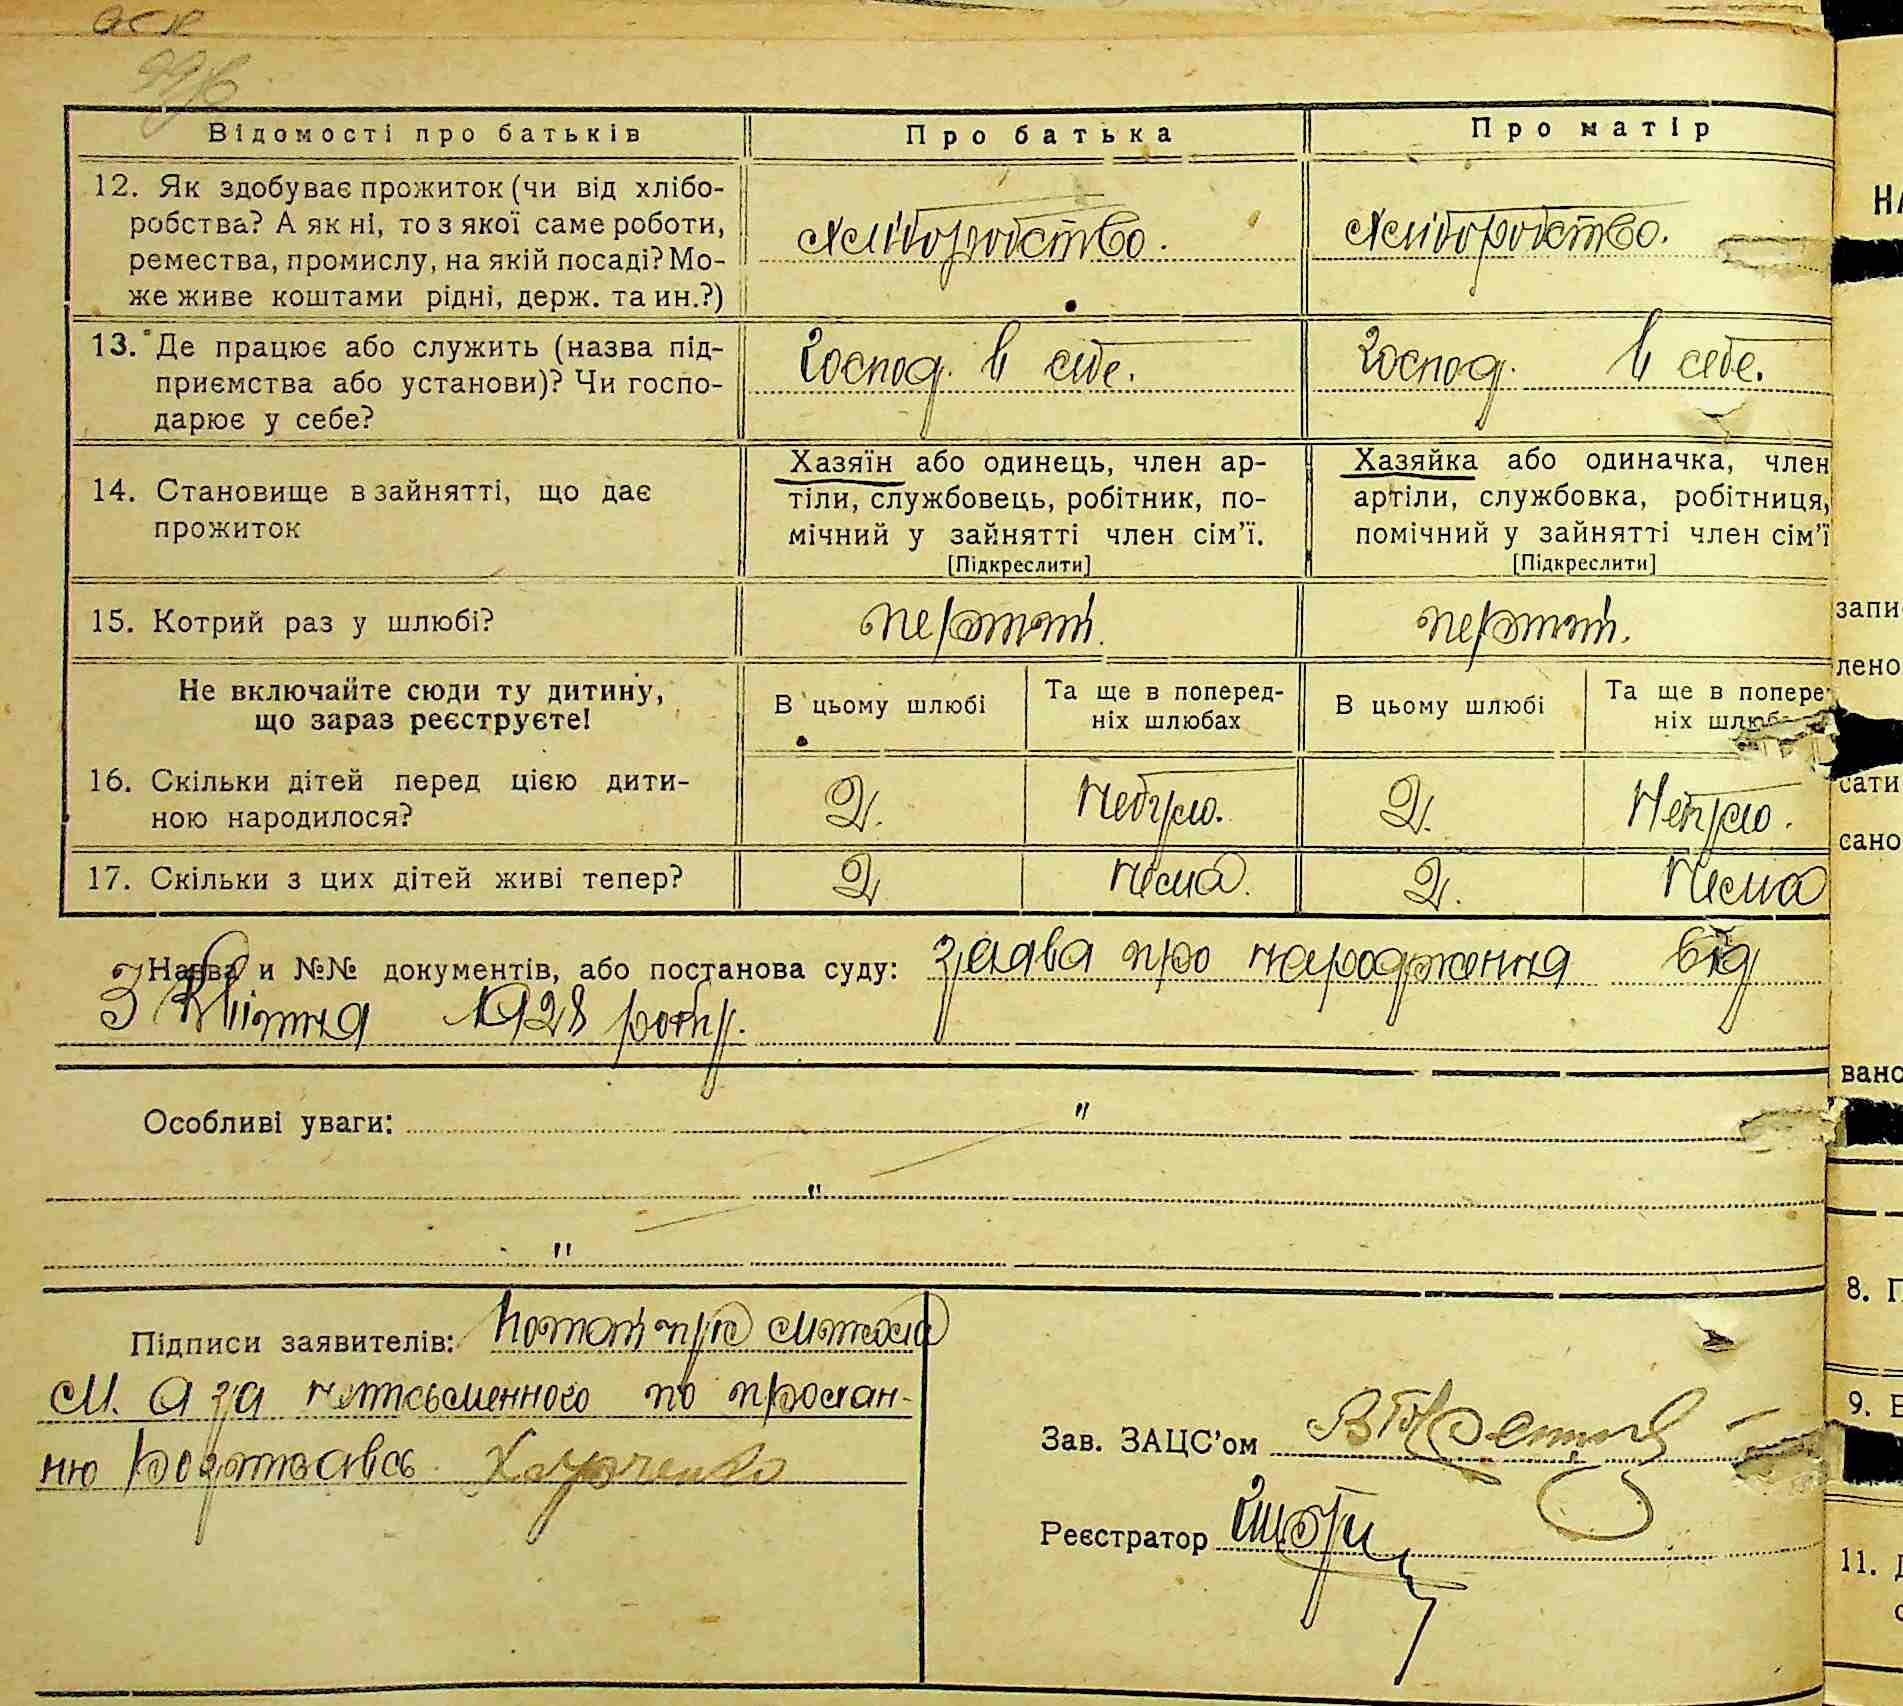 Відомості про батьків
Про батька
Про матір
12. Як здобуває прожиток (чи від хлібо-
робства? А як ні, то з якої саме роботи,
ремества, промислу, на якій посаді? Мо-
же живе коштами рідні, держ. та ин.?)
хліборобство.
хліборобство.
13. Де працює або служить (назва під-
приємства або установи)? Чи госпо-
дарює у себе?
Господ. в себе.
Господ. в себе.
14. Становище в зайнятті, що дає
прожиток
Хазяїн або одинець, член ар-
тіли, службовець, робітник, по-
мічний у зайнятті член сім'ї.
[Підкреслити]
Хазяйка або одиначка, член
артіли, службовка, робітниця,
помічний у зайнятті член сім'ї
[Підкреслити]
15. Котрий раз у шлюбі?
перший.
перший.
Не включайте сюди ту дитину,
що зараз реєструєте!
В цьому шлюбі
Та ще в поперед-
ніх шлюбах
В цьому шлюбі
Та ще в попере
ніх
16. Скільки дітей перед цією дити-
ною народилося?
2.
Небуло.
2.
Небуло.
17. Скільки з цих дітей живі тепер?
2
Нема.
2.
Нема
Назва и №№ документів, або постанова суду: заява про народження від
3 Квітня 1928 року.
Особливі уваги: "
"
"
Підписи заявителів:
М. А за неписьменного по прохан-
ню Розписавсь Харченко
Зав. ЗАЦС'ом
Реєстратор
НА
запи
лено
сати
сано
ванс
8. П
9. Е
11.